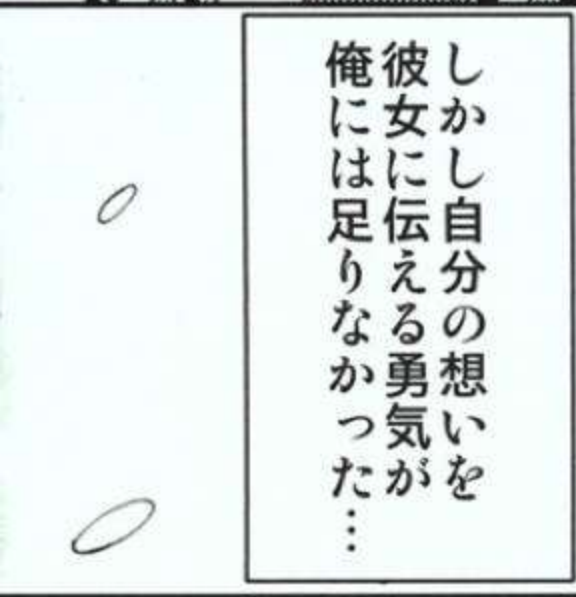 しかし自分の想いを
彼女に伝える勇気が
俺には足りなかった…